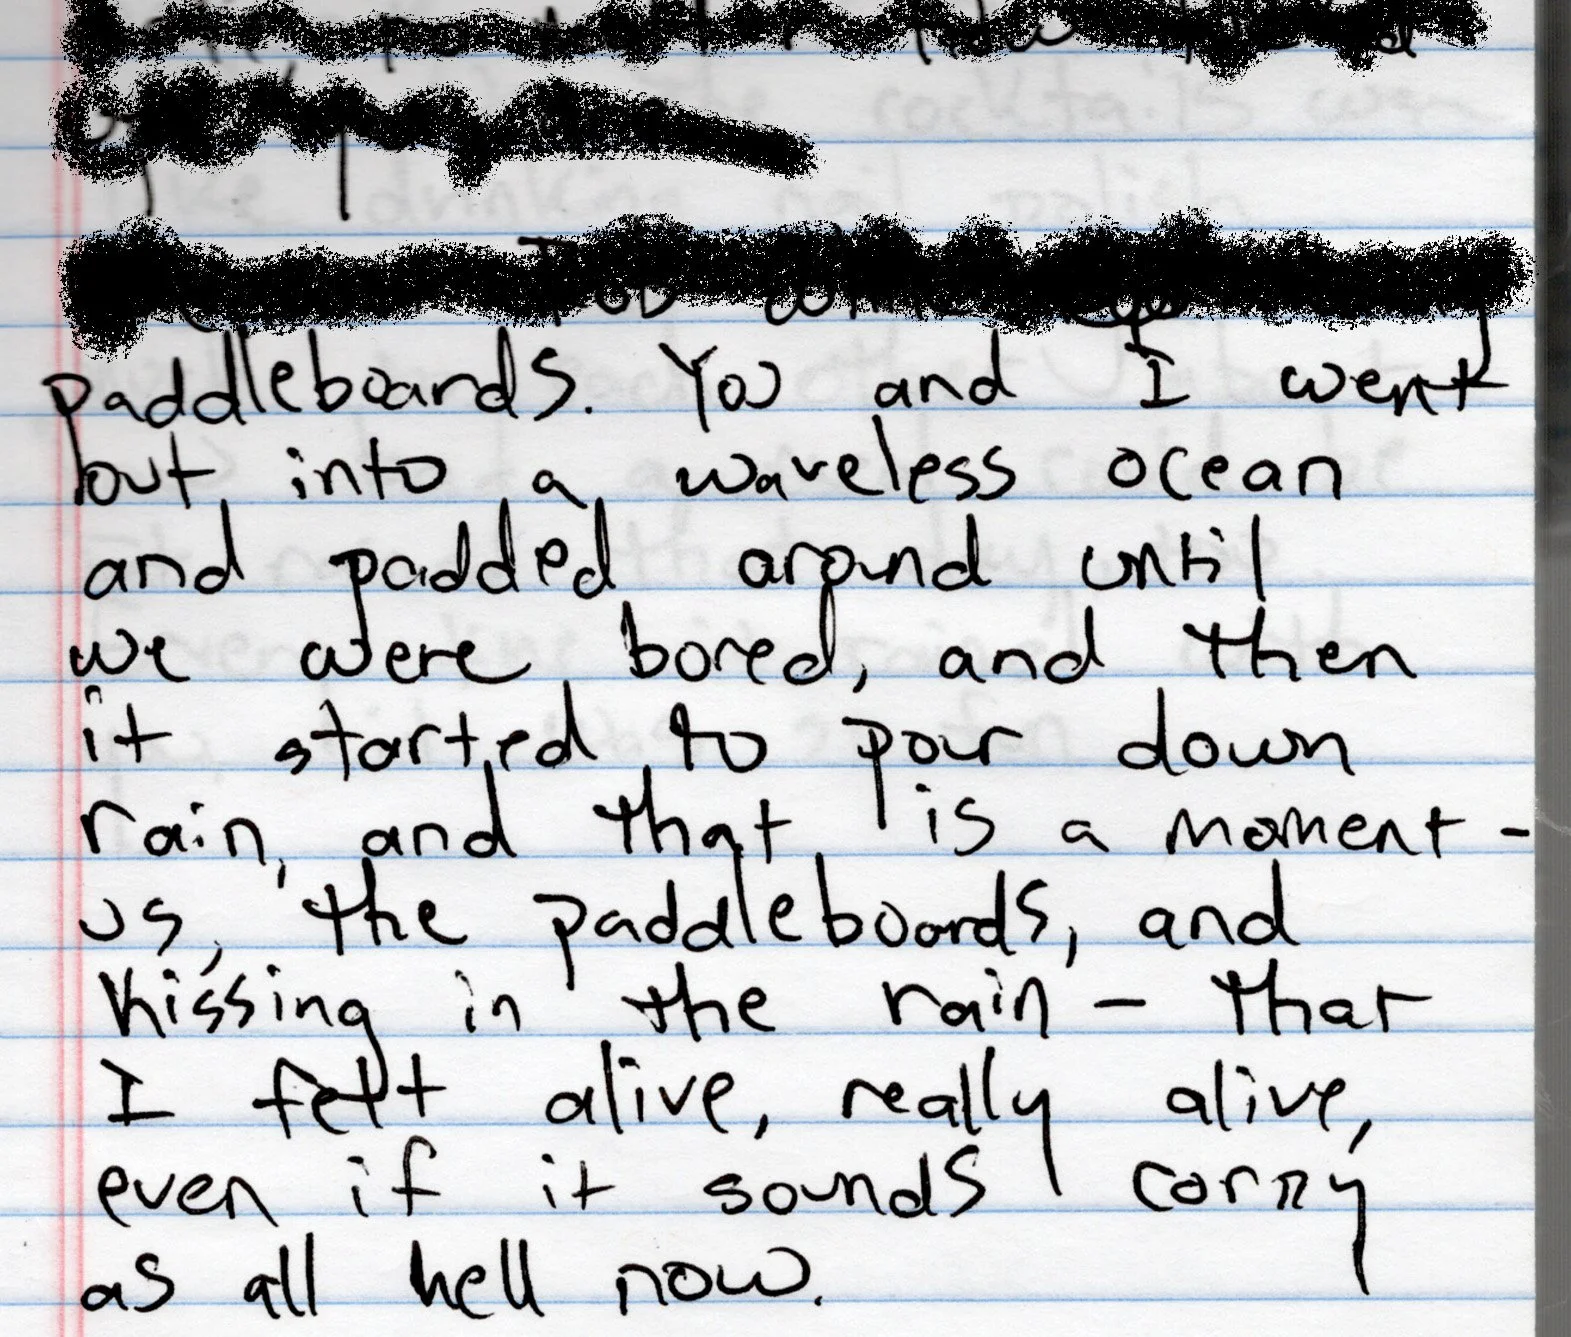 paddleboards. You and I went
out into a waveless ocean
and padded around until
we were bored, and then
it started to pour down
rain, and that is a moment -
us, the paddleboards, and
kissing in the rain - that
I felt alive, really alive,
even if it sounds corny
as all hell now.